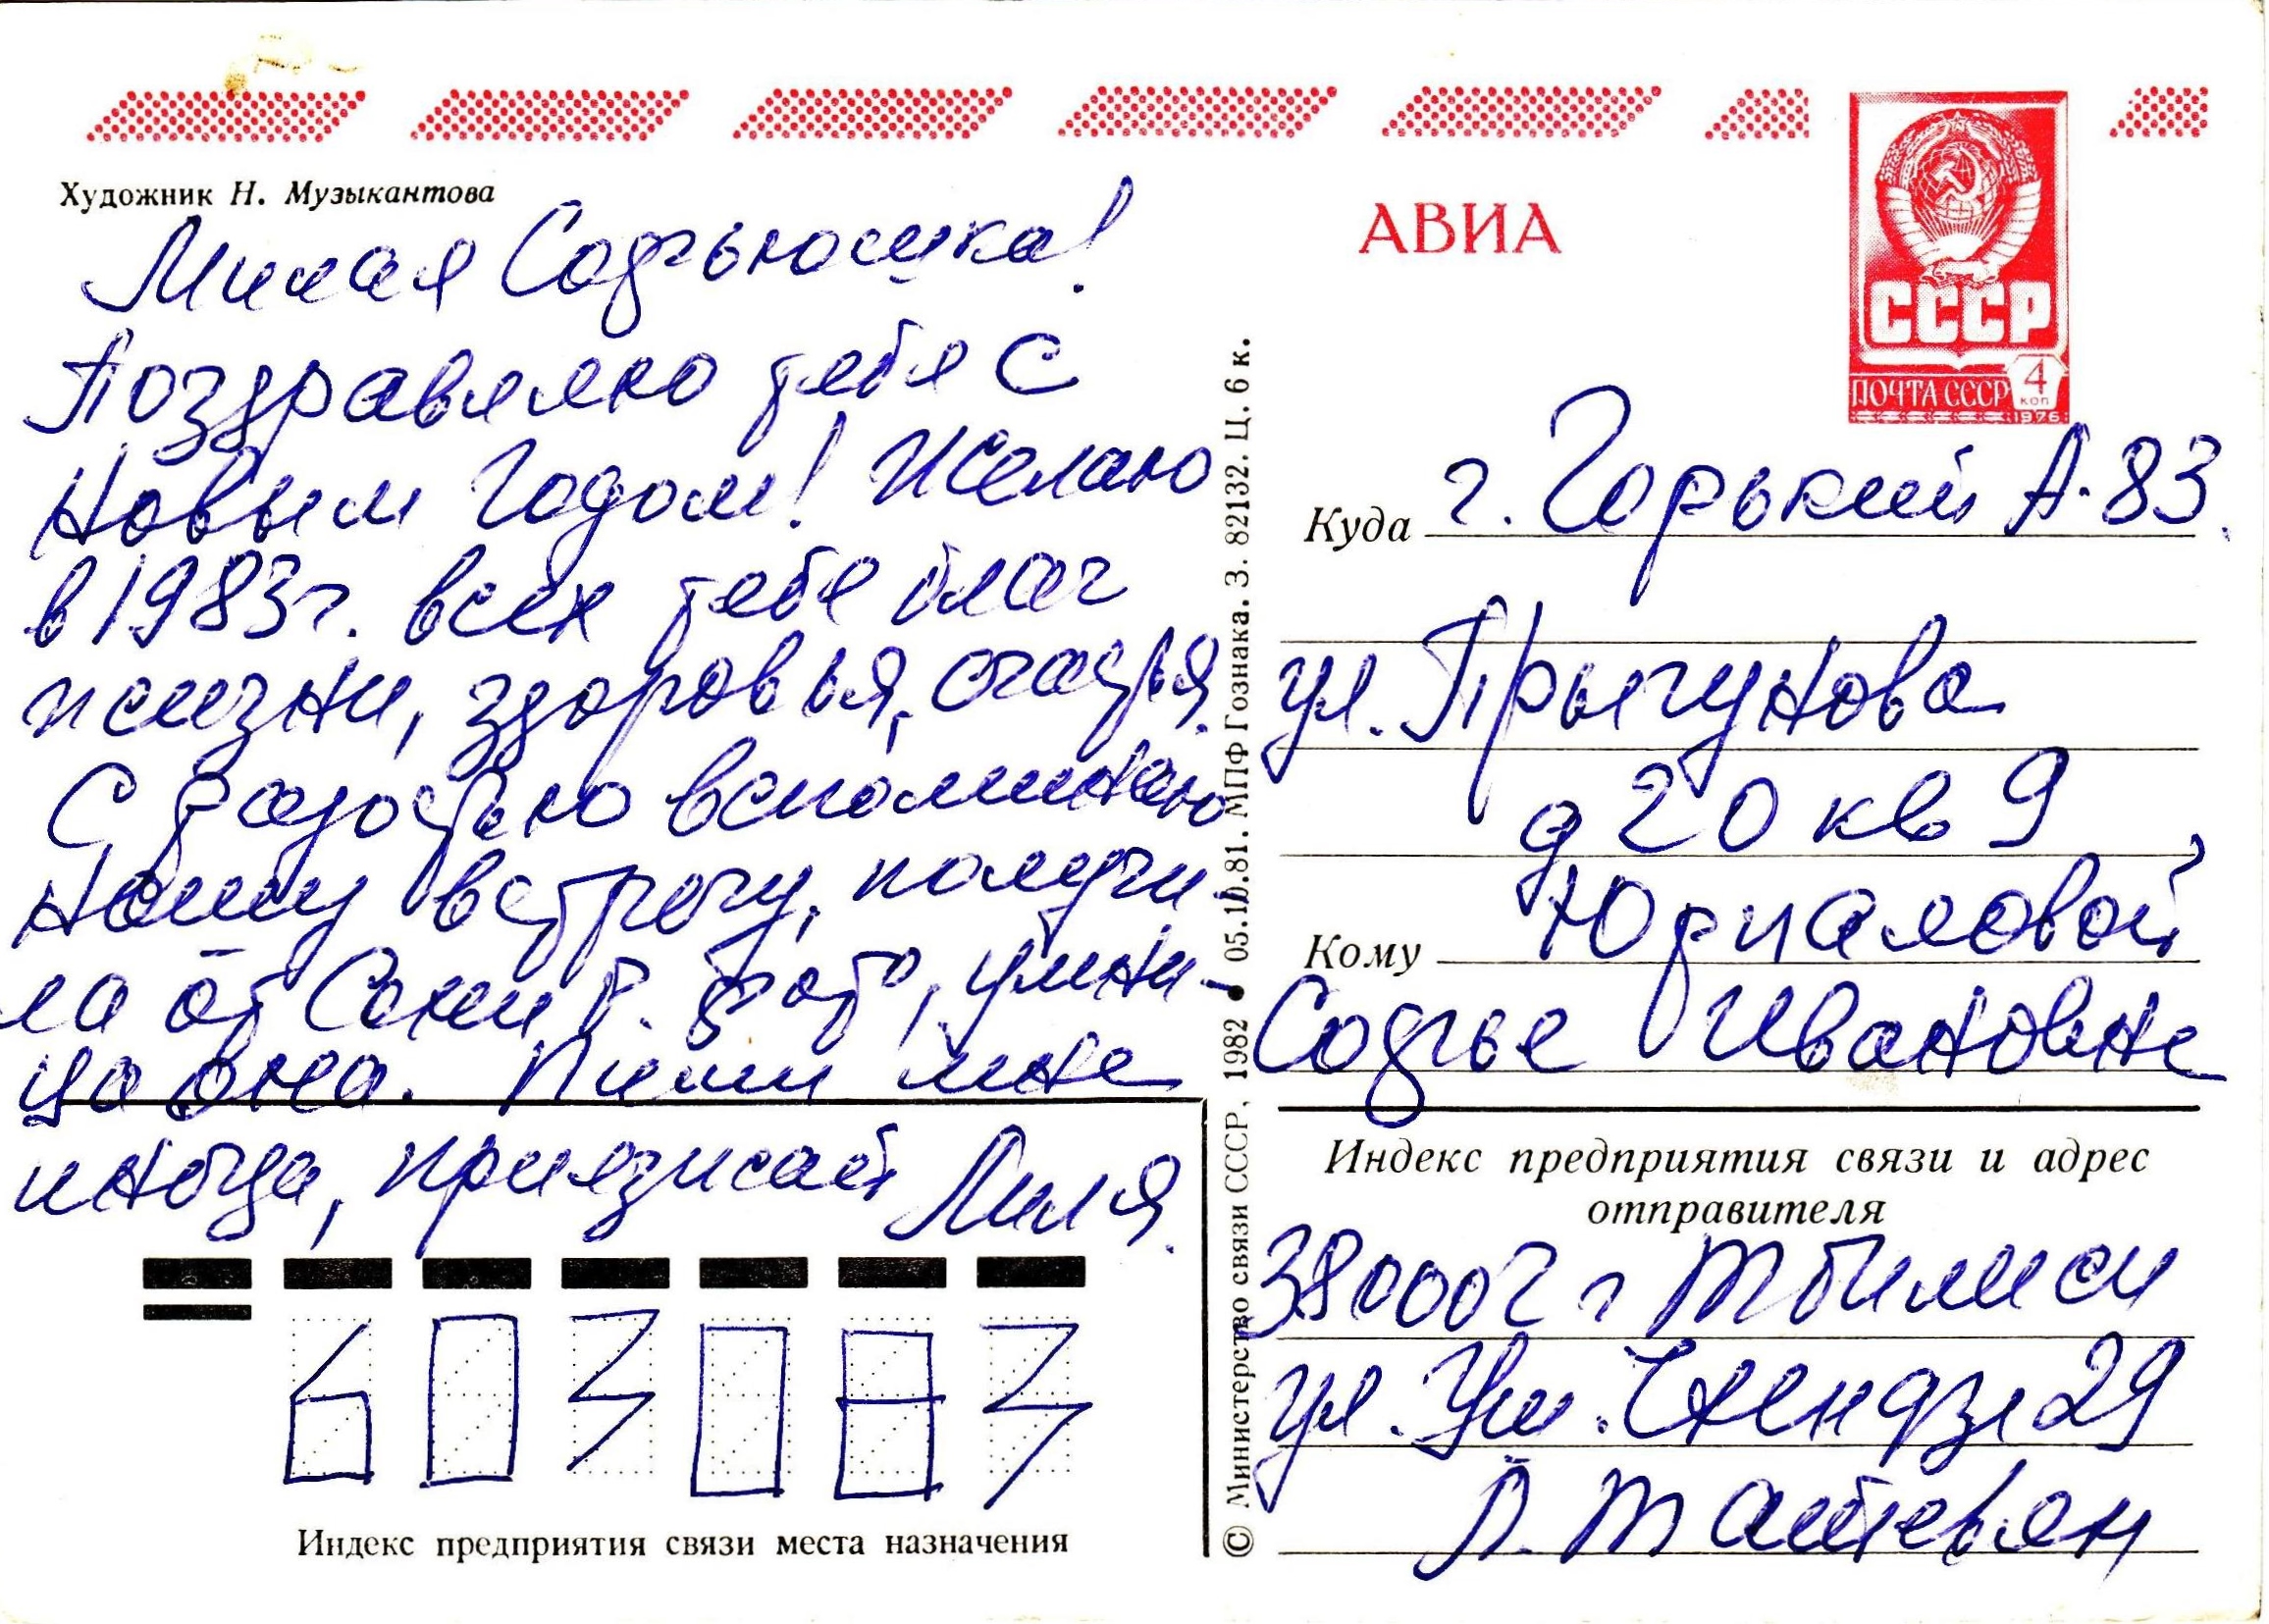 Художник Н. Музыкантова
Милая Софьюшка!
Поздравляю тебя с
Новым Годом! Желаю
в 1983г. всех тебе благ
жизни, здоровья, счастья.
С радостью вспоминаю
нашу встречу, получи
ла от Сони Г. фото, умни-
ца она. Пиши мне
иногда, приезжай Лиля.
603083
Индекс предприятия связи места назначения
© Министерство связи СССР, 1982 • 05.10.81. МПФ Гознака. З. 82132. Ц. 6 к.
АВИА
СССР
ПОЧТА СССР 4 коп
1976
Куда г. Горький А-83,
ул. Прыгунова
д 20 кв 9,
Кому
Софье Ивановне
Индекс предприятия связи и адрес
отправителя
380002 г Тбилиси
ул. 29
Л.